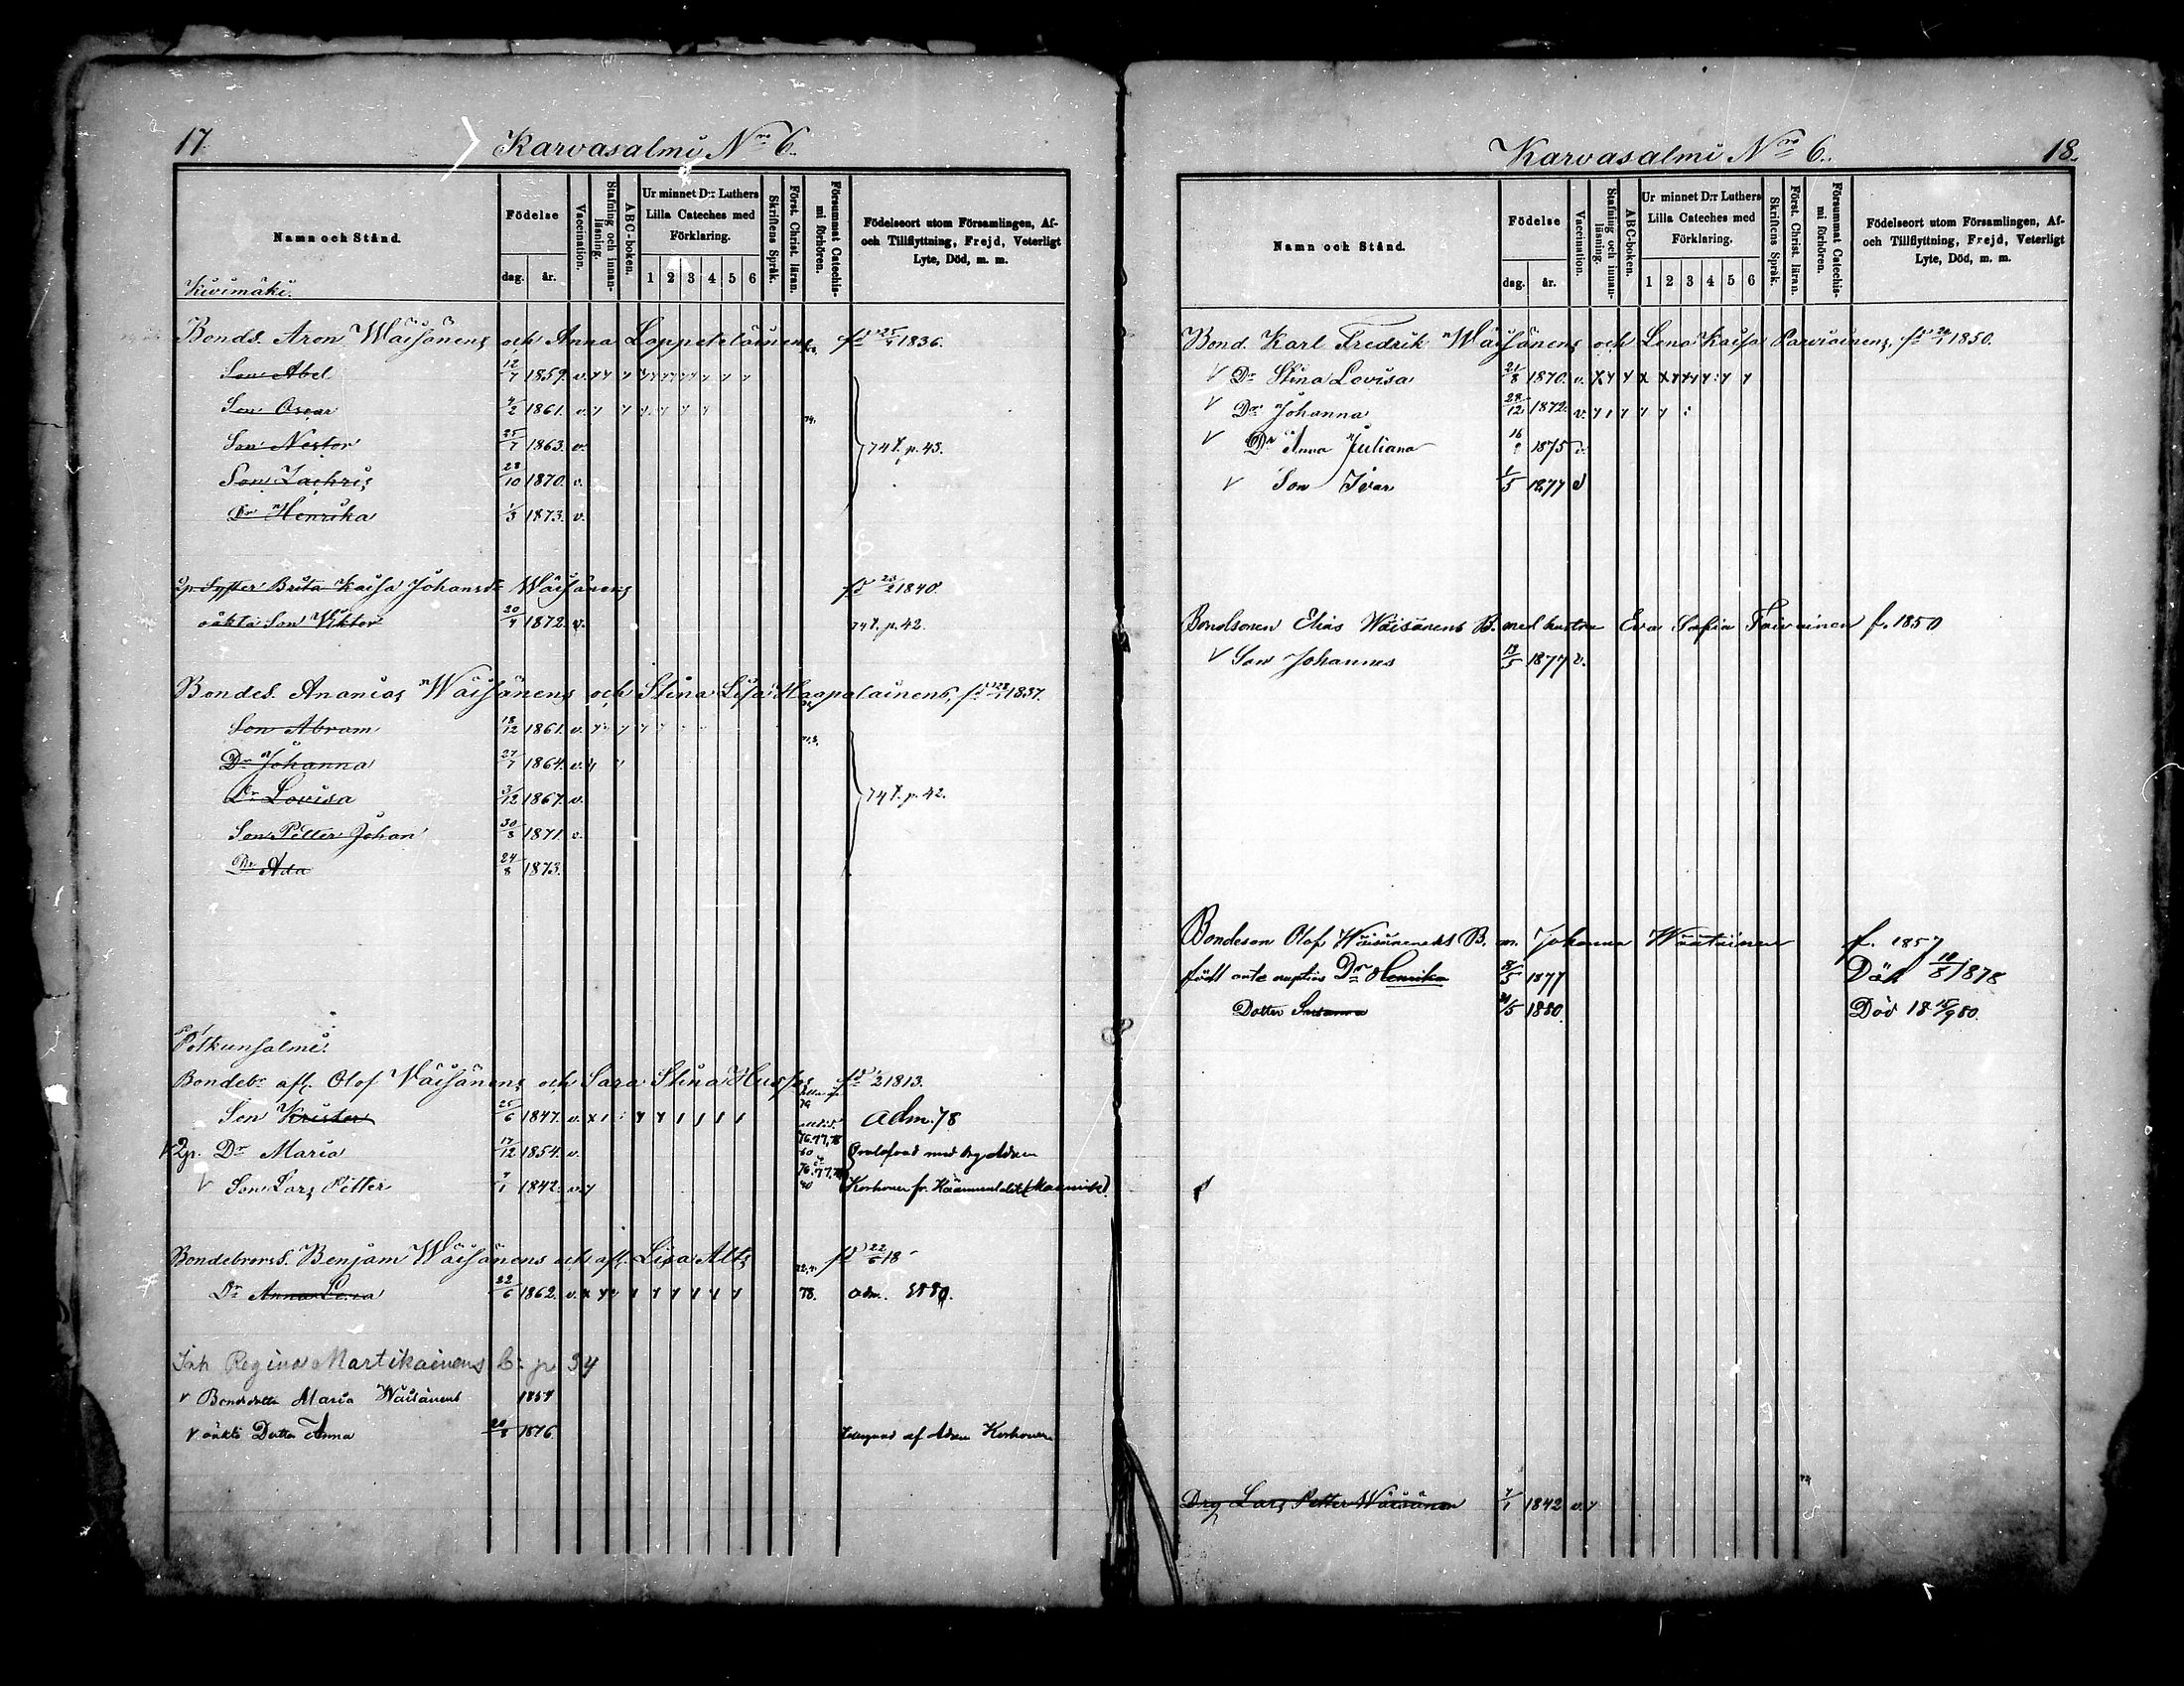 17.
Karvasalmi Nro 6.
Namn och Stånd.
Födelse
dag. år.
Vaccination.
Stafning och innanläsning.
ABC-boken.
Ur minnet D:r Luthers Lilla Cateches med Förklaring.
1 2 3 4 5 6
Skriftens Språk.
Först. Christ. läran.
Försummat Catechismi förhören.
Födelseort utom Församlingen, Af- och Tillflyttning, Frejd, Veterligt Lyte, Död, m. m.
Kivimäki.
Bonds. Aron Wäisänens och Anna Loppeteläinens fd 25/1 1836.
Son Abel 12/7 1859. v.
Son Oscar 4/2 1861. v. 74.
Son Nestor 25/7 1863. v. 74 p. 43.
Son Zachris 28/10 1870. v.
Dr Henrika 1/3 1873. v.
2p. Syster Brita Kaisa Johansdr Wäisänens fd 1840.
oäkta Son Viktor 20/4 1872. v. p. 42.
Bondes. Ananias Wäisänens och Stina Lisa Haapalainens, 1837.
Son Abram 18/12 1861. v.
Dr Johanna 27/7 1864. v.
Dr Lovisa 3/12 1867. v. 74 p. 42.
Son Petter Johan 30/8 1871. v.
Dr Ada 24/8 1873.
Pitkunsalmi.
Bondebr. afl. Olof Wäisänens och Sara Stina Husses fd 1813.
Son Krister 25/6 1847. v. adm. 78
2p. Dr Maria 17/12 1854. v. 76.77.78
Son Lars Petter 7/1 1842. v.
Bondebrors. Benjam Wäisänens och afl. Lisa Alts fd 22/6 18
Dr Anna Lena 22/6 1862. v. 78. adm. 1880.
Inh Regina Martikainens p. 34
v Bondedotter Maria Wäisänens 1854
v. oäkta Dotter Anna 20/8 1876. af Adam Korhonen
Karvasalmi Nro 6.
18.
Namn och Stånd.
Födelse
dag. år.
Vaccination.
Stafning och innanläsning.
ABC-boken.
Ur minnet D:r Luthers Lilla Cateches med Förklaring.
1 2 3 4 5 6
Skriftens Språk.
Först. Christ. läran.
Försummat Catechismi förhören.
Födelseort utom Församlingen, Af- och Tillflyttning, Frejd, Veterligt Lyte, Död, m. m.
Bond. Karl Fredrik Wäisänens och Lena Kaisa Parviainens, 1850.
v Dr Stina Lovisa 21/8 1870. v.
v Dr Johanna 28/12 1872. v.
v Dr Anna Juliana 1875 v.
v Son Ivar 1/5 1877 v
Bondsonen Elias Wäisänens B. med hustru Eva Sofia Toivainen f. 1850
v Son Johannes 13/5 1877 v.
Bondeson Olof Wäisänens B. m. Johanna Wäätäinen f. 1857
född ante nuptias Dr Henrika 8/5 1877 Död 10/8 1878
Dotter Susanna 31/5 1880 Död 18 15/9 80.
Drg Lars Petter Wäisänen 7/1 1842 v.